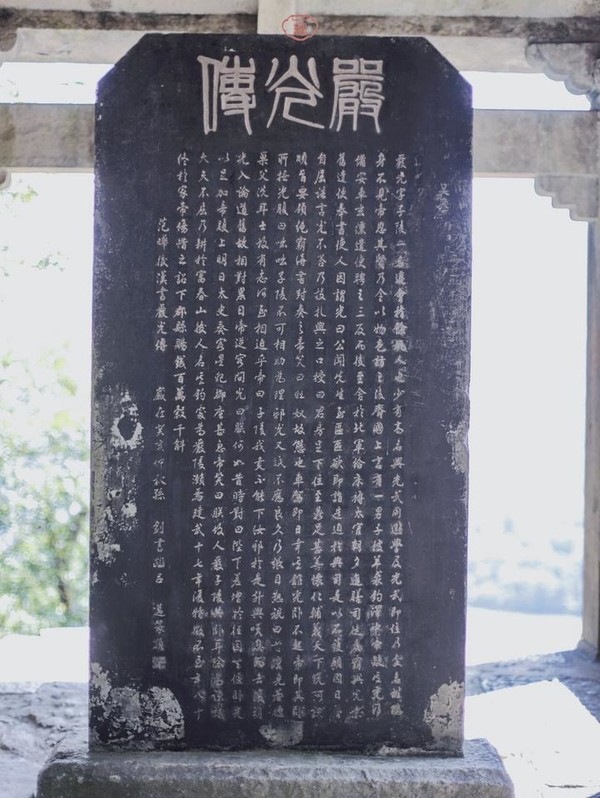 嚴光傳
嚴光字子陵一名遵會稽餘姚人也少有高名與光武同遊學及光武即位乃變名姓隱
身不見帝思其賢乃令以物色訪之後齊國上言有一男子披羊裘釣澤中帝疑其光乃
備安車玄纁遣使聘之三反而後至舍於北軍給床褥太官朝夕進膳司徒侯霸與光素
舊遣使奉書使人因謂光曰公聞先生至區區欲即詣造迫於典司是以不獲願因日暮
自屈語言光不答乃投札與之口授曰君房足下位至鼎足甚善懷仁輔義天下悅阿諛
順旨要領絕霸得書封奏之帝笑曰狂奴故態也車駕即日幸其館光卧不起帝即其卧
所撫光腹曰咄咄子陵不可相助為理邪光又眠不應良久乃張目熟視曰昔唐堯著德
巢父洗耳士故有志何至相迫乎帝曰子陵我竟不能下汝邪於是升輿嘆息而去復引
光入論道舊故相對累日帝從容問光曰朕何如昔時對曰陛下差增於往因共偃卧光
以足加帝腹上明日太史奏客星犯御座甚急帝笑曰朕故人嚴子陵共卧耳除為諫議
大夫不屈乃耕於富春山後人名其釣處為嚴陵瀨焉建武十七年復特徵不至年八十
終於家帝傷惜之詔下郡縣賜錢百萬穀千斛
范曄後漢書嚴光傳 歲在癸亥仲秋 劉書